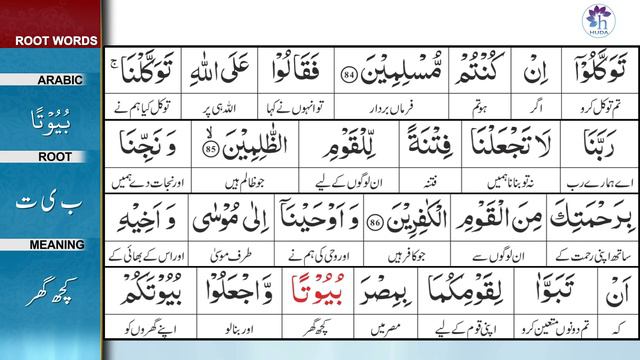 ROOT WORDS
ARABIC
بُيُوْتًا
ROOT
ب ی ت
MEANING
کچھ گھر
HUDA
تَوَكَّلُوْۤا اِنْ كُنْتُمْ مُّسْلِمِيْنَ 84 فَقَالُوْا عَلَى اللّٰهِ تَوَكَّلْنَا ۚ
تم توکل کرو اگر ہو تم فرماں بردار تو انہوں نے کہا اللہ ہی پر توکل کیا ہم نے
رَبَّنَا لَا تَجْعَلْنَا فِتْنَةً لِّلْقَوْمِ الظّٰلِمِيْنَ ۙ 85 وَ نَجِّنَا
اے ہمارے رب نہ تو بنانا ہمیں فتنہ ان لوگوں کے لیے جو ظالم ہیں اور نجات دے ہمیں
بِرَحْمَتِكَ مِنَ الْقَوْمِ الْكٰفِرِيْنَ 86 وَ اَوْحَيْنَاۤ اِلٰى مُوْسٰى وَ اَخِيْهِ
ساتھ اپنی رحمت کے ان لوگوں سے جو کافر ہیں اور وحی کی ہم نے طرف موسیٰ اور اس کے بھائی کے
اَنْ تَبَوَّاٰ لِقَوْمِكُمَا بِمِصْرَ بُيُوْتًا وَّ اجْعَلُوْا بُيُوْتَكُمْ
کہ تم دونوں متعین کرو اپنی قوم کے لیے مصر میں کچھ گھر اور بنا لو اپنے گھروں کو